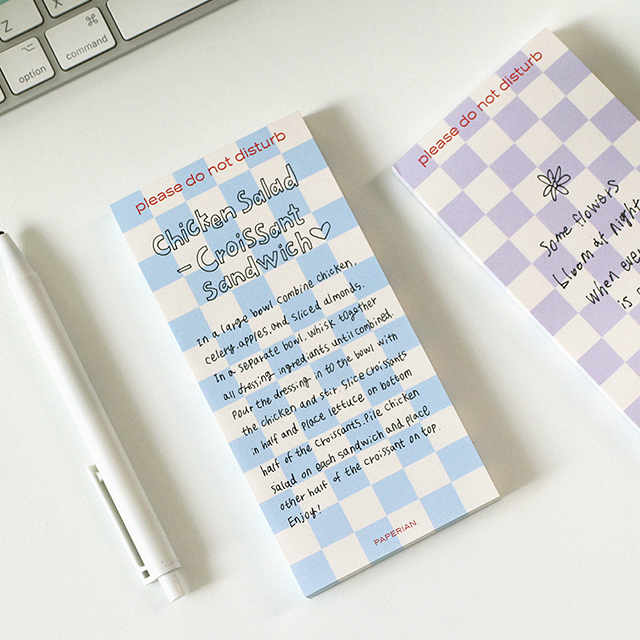 Z
X
⌥
option
⌘
command
please do not disturb
Chicken Salad
- Croissant
Sandwich♡
In a large bowl combine chicken,
celery, apples and sliced almonds.
In a separate bowl, whisk together
all dressing ingrediants until combined.
Pour the dressing in to the bowl with
the chicken and stir. Slice croissants
in half and place lettuce on bottom
half of the croissants. Pile chicken
salad on each sandwich and place
other half of the croissant on top.
Enjoy!
PAPERIAN
please do not disturb
Some flowers
bloom at night
When ever
is